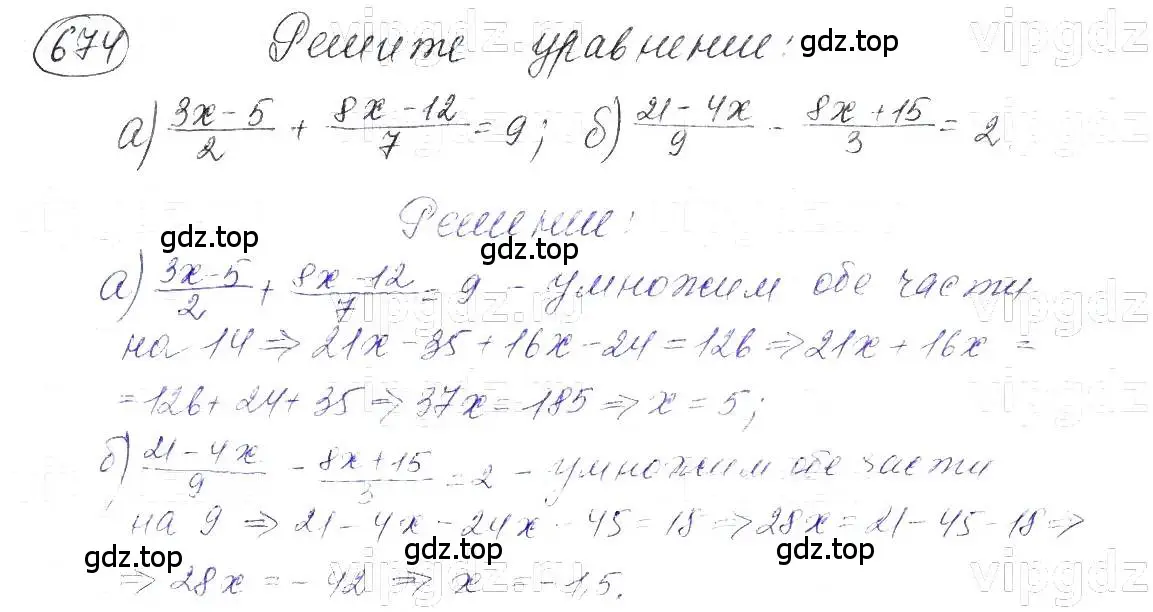 674 Решите уравнение:
а) (3x-5)/2 + (8x-12)/7 = 9; б) (21-4x)/9 - (8x+15)/3 = 2.
Решение:
а) (3x-5)/2 + (8x-12)/7 = 9 - умножим обе части
на 14 => 21x-35+16x-24=126 => 21x+16x =
=126+24+35 => 37x=185 => x=5;
б) (21-4x)/9 - (8x+15)/3 = 2 - умножим обе части
на 9 => 21-4x-24x-45=18 => 28x=21-45-18 =>
=> 28x=-42 => x=-1,5.
gdz.top
gdz.top
gdz.top
gdz.top
gdz.top
vipgdz